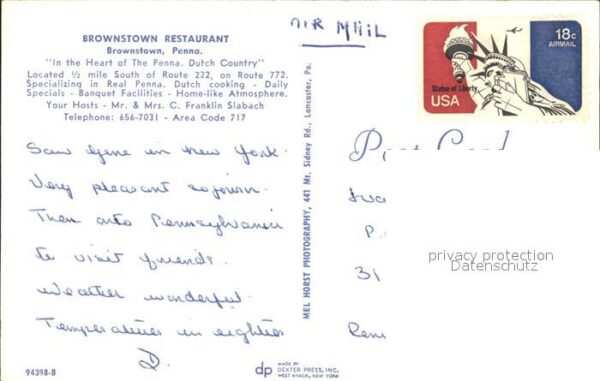 BROWNSTOWN RESTAURANT
Brownstown, Penna.
"In the Heart of The Penna. Dutch Country"
Located ½ mile South of Route 222, on Route 772.
Specializing in Real Penna. Dutch cooking - Daily
Specials - Banquet Facilities - Home-like Atmosphere.
Your Hosts - Mr. & Mrs. C. Franklin Slabach
Telephone: 656-7031 - Area Code 717
Saw Gene in New York.
Very pleasant sojourn.
Then onto Pennsylvania
to visit friends.
Weather wonderful.
Temperatures in eighties
D.
94398-B
MEL HORST PHOTOGRAPHY, 441 Mt. Sidney Rd., Lancaster, Pa.
dp
MADE BY
DEXTER PRESS, INC.
WEST NYACK, NEW YORK
AIR MAIL
18c
AIRMAIL
Statue of Liberty
USA
Post Card
P.
31
privacy protection
Datenschutz